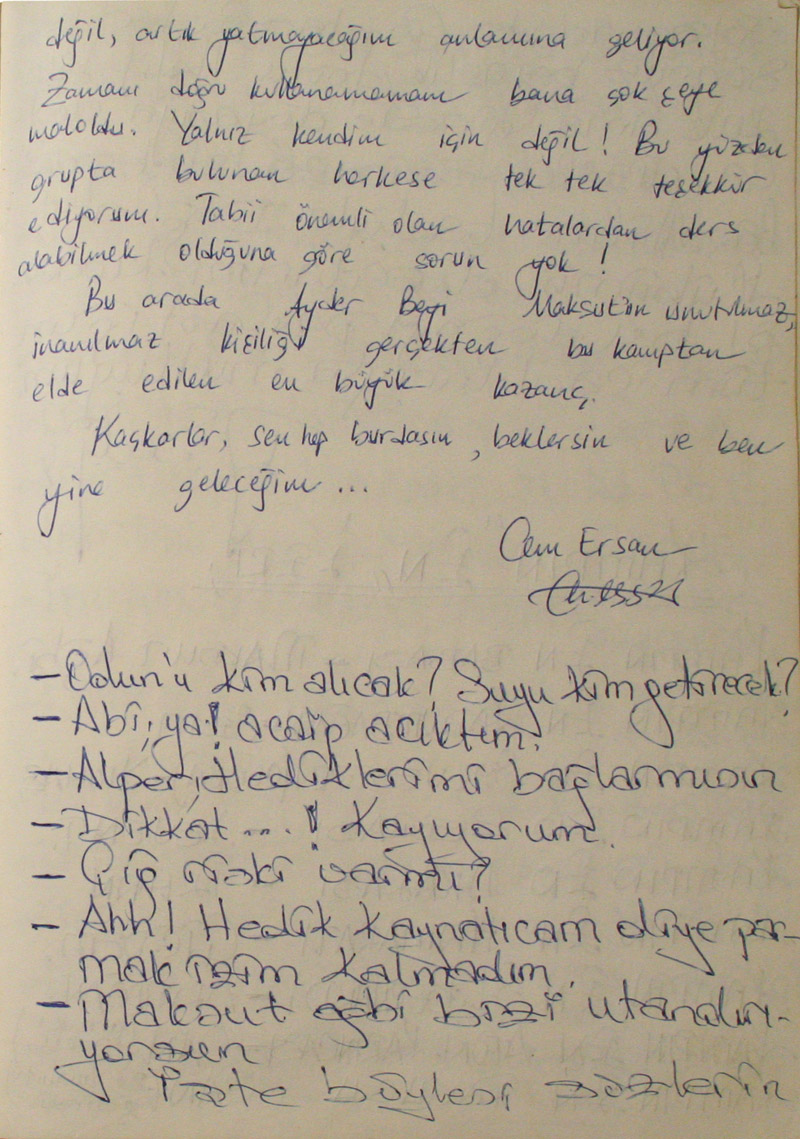 değil, artık yatmayacağım anlamına geliyor.
Zamanı doğru kullanamamam bana çok şeye
maloldu. Yalnız kendim için değil! Bu yüzden
grupta bulunan herkese tek tek teşekkür
ediyorum. Tabii önemli olan hatalardan ders
alabilmek olduğuna göre sorun yok!
Bu arada Ayder Beyi Maksut'un unutulmaz,
inanılmaz kişiliği gerçekten bu kamptan
elde edilen en büyük kazanç.
Kaçkarlar, sen hep burdasın, beklersin ve ben
yine geleceğim...
Cem Ersan
- Odun'u kim alıcak? Suyu kim getirecek?
- Abi, ya! acaip acıktım.
- Alper, Hediklerimi bağlarmısın
- Dikkat...! Kayıyorum.
- Çığ riski varmı?
- Ahh! Hedik kaynatıcam diye par-
mak izim kalmadım.
- Maksut ağbi bizi utandırı-
yorsun
İşte böylesi sözlerin